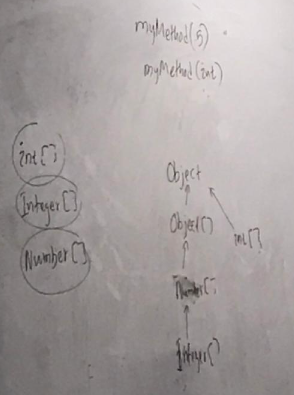 myMethod(5)
myMethod(int)
int[]
Integer[]
Number[]
Object
Object[]
int[]
Number[]
Integer[]